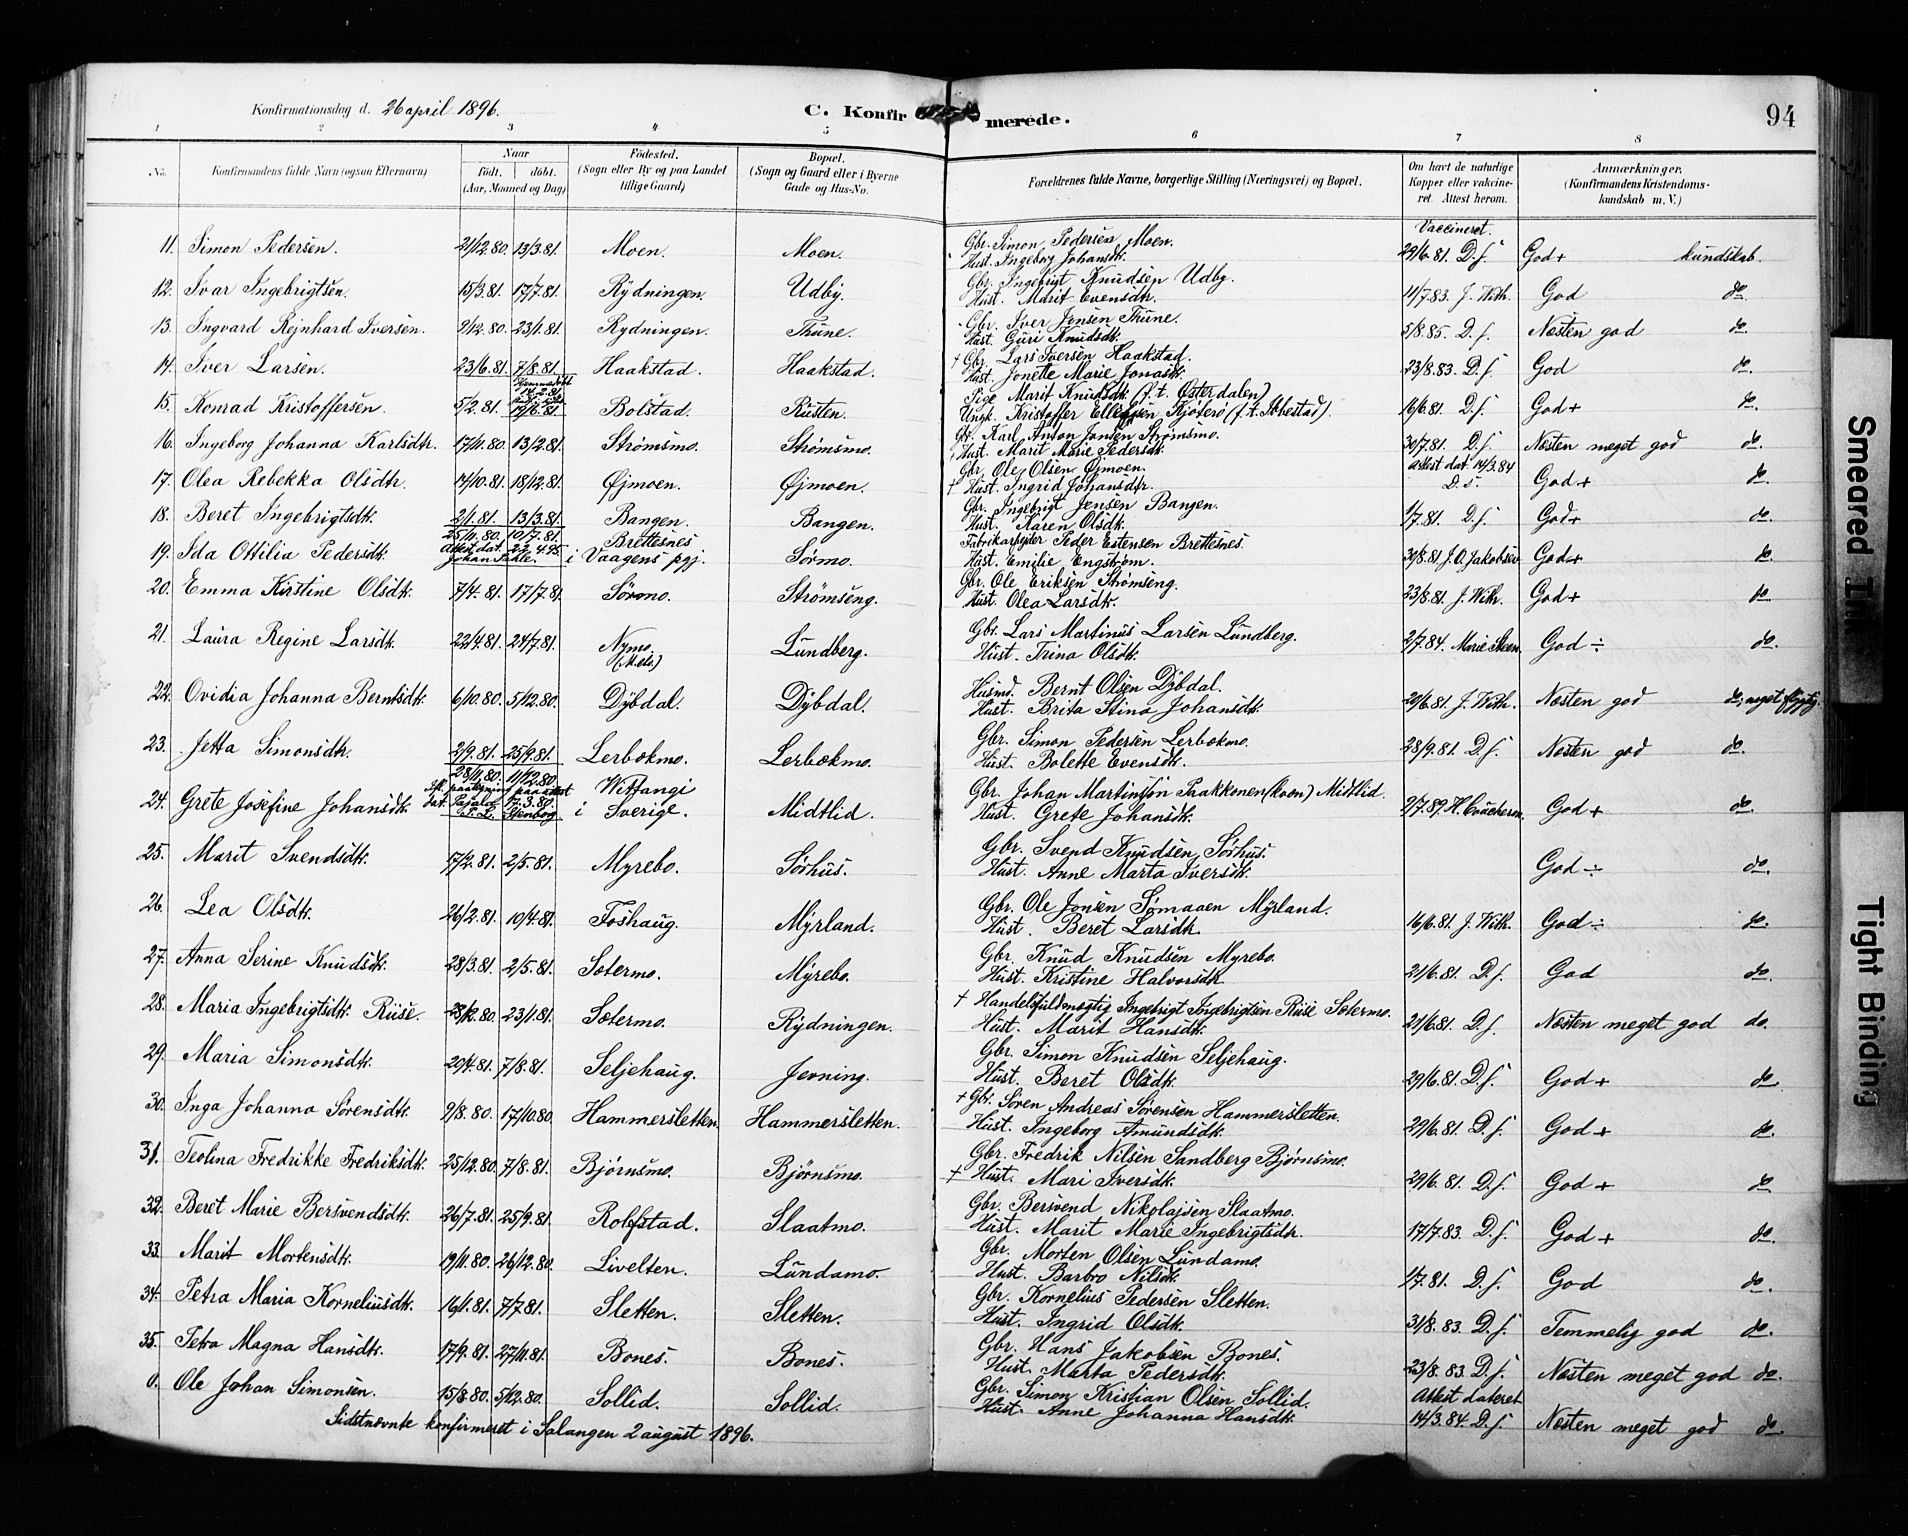 Konfirmationsdag d. 26 april 1896.
C. Konfirmerede.
94
1 2 3 4 5 6 7 8
No. Konfirmandens fulde Navn (ogsaa Efternavn) Naar født. døbt. (Aar, Maaned og Dag) Fødested. (Sogn eller By og paa Landet tillige Gaard) Bopæl. (Sogn og Gaard eller i Byerne Gade og Hus-No. Forældrenes fulde Navne, borgerlige Stilling (Næringsvei) og Bopæl. Om havt de naturlige Kopper eller vakcineret Attest herom. Anmærkninger. (Konfirmandens Kristendomskundskab m. V.)
Vaccineret.
11. Simon Pedersen. 21/12.80. 13/3.81. Moen. Moen. Gbr. Simon Pedersen Moen. Hust. Ingeborg Johansdtr. 29/6.81. D.s. God+ kundskab.
12. Ivar Ingebrigtsen. 15/3.81. 17/7.81. Rydningen. Udby. Gbr. Ingebrigt Knudsen Udby. Hust. Marit Evensdtr. 11/7.83. J. With. God do.
13. Ingvard Rejnhard Iversen. 9/12.80. 23/1.81. Rydningen. Thune. Gbr. Iver Jensen Thune. Hust. Guri Knudsdtr. 5/8.85. D.s. Næsten god do.
14. Iver Larsen. 23/6.81. 7/8.81. Haakstad. Haakstad. + Gbr. Lars Iversen Haakstad. Hust. Jonette Marie Jonasdtr. 23/8.83. D.s. God do.
15. Konrad Kristoffersen. 5/2.81. Hjemmedøbt 14.2.81 19/6.81. Bolstad. Rusten. Pige Marit Knudsdtr. (f.t. Østerdalen) Ungk. Kristoffer Ellefsen Kjøterø (f.t. Ibbestad). 16/6.81. D.s. God+ do.
16. Ingeborg Johanna Karlsdtr. 17/11.80. 13/2.81. Strømsmo. Strømsmo. Gbr. Karl Anton Jonsen Strømsmo. Hust. Marit Marie Pedersdtr. 30/7.81. D.s. Næsten meget god do.
17. Olea Rebekka Olsdtr. 14/10.81. 18/12.81. Øjmoen. Øjmoen. Gbr. Ole Olsen Øjmoen. + Hust. Ingrid Johansdtr. Attest dat. 14/3.84 D.s. God+ do.
18. Beret Ingebrigtsdtr. 2/1.81. 13/3.81. Bangen. Bangen. Gbr. Ingebrigt Jensen Bangen. Hust. Karen Olsdtr. 1/7.81. D.s. God+ do.
19. Ida Ottilia Pedersdtr. 25/11.80. 10/7.81. Attest dat. 22.4.95 Brettesnes i Vaagens pgj. Sørmo. Fabrikarbejder Peder Estensen Brettesnes. Hust. Emilie Engstrøm. 30/8.81. J.O. Jakobsen God+ do.
20. Emma Kirstine Olsdtr. 7/4.81. 17/7.81. Sørmo. Strømseng. Gbr. Ole Eriksen Strømseng. Hust. Olea Larsdtr. 23/8.81. J. With. God+ do.
21. Laura Regine Larsdtr. 22/4.81. 24/7.81. Nymo. Lundberg. Gbr. Lars Martinus Larsen Lundberg. Hust. Trina Olsdtr. 2/7.84. Marie Steen God ÷ do.
22. Ovidia Johanna Berntsdtr. 6/10.80. 5/12.80. Dybdal. Dybdal. Husmd. Bernt Olsen Dybdal. Hust. Brita Stina Johansdtr. 20/6.81. J. With. Næsten god do, noget flygtig.
23. Jetta Simonsdtr. 2/9.81. 25/9.81. Lerbækmo. Lerbækmo. Gbr. Simon Pedersen Lerbækmo. Hust. Bolette Evensdtr. 28/9.81. D.s. Næsten god do.
24. Grete Josefine Johansdtr. 28/11.80. 11/12.80. Wittangi i Sverige. Midtlid. Gbr. Johan Martinsøn Paakkonen (koen) Midtlid. Hust. Grete Johansdtr. 9/7.89. God+ do.
25. Marit Svendsdtr. 17/2.81. 2/5.81. Myrebo. Sørhus. Gbr. Svend Knudsen Sørhus. Hust. Anne Marta Iversdtr. God ÷ do.
26. Lea Olsdtr. 26/2.81. 10/4.81. Foshaug. Myrland. Gbr. Ole Jonsen Sømaaen Myrland. Hust. Beret Larsdtr. 16/6.81. J. With. God ÷ do.
27. Anna Serine Knudsdtr. 28/3.81. 2/5.81. Sætermo. Myrebo. Gbr. Knud Knudsen Myrebo. Hust. Kristine Halvorsdtr. 21/6.81. D.s. God do.
28. Maria Ingebrigtsdtr. Riise. 28/12.80. 23/1.81. Sætermo. Rydningen. + Handelsfuldmægtig Ingebrigt Ingebrigtsen Riise Sætermo. Hust. Marit Hansdtr. 21/6.81. D.s. Næsten meget god do.
29. Maria Simonsdtr. 20/4.81. 7/8.81. Seljehaug. Jevning. Gbr. Simon Knudsen Seljehaug. Hust. Beret Olsdtr. 29/6.81. D.s. God+ do.
30. Inga Johanna Sørensdtr. 9/8.80. 17/10.80. Hammersletten. Hammersletten. + Gbr. Søren Andreas Sørensen Hammersletten. Hust. Ingeborg Amundsdtr. 29/6.81. D.s. God+ do.
31. Teolina Fredrikke Fredriksdtr. 25/12.80. 7/8.81. Bjørnsmo. Bjørnsmo. Gbr. Fredrik Nilsen Sandberg Bjørnsmo. + Hust. Mari Iversdtr. 29/6.81. D.s. God+ do.
32. Beret Marie Bersvendsdtr. 26/7.81. 25/9.81. Rolfstad. Slaatmo. Gbr. Bersvend Nikolajsen Slaatmo. Hust. Marit Marie Ingebrigtsdtr. 17/7.83. D.s. God+ do.
33. Marit Mortensdtr. 19/11.80. 26/12.80. Livelten. Lundamo. Gbr. Morten Olsen Lundamo. Hust. Barbro Nilsdtr. 1/7.81. D.s. God do.
34. Petra Maria Korneliusdtr. 16/1.81. 7/7.81. Sletten. Sletten. Gbr. Kornelius Pedersen Sletten. Hust. Ingrid Olsdtr. 31/8.83. D.s. Temmelig god do.
35. Petra Magna Hansdtr. 17/9.81. 27/11.81. Bones. Bones. Gbr. Hans Jakobsen Bones. Hust. Marta Pedersdtr. 23/8.83. D.s. Næsten meget god do.
0. Ole Johan Simonsen. 15/8.80. 5/12.80. Sollid. Sollid. Gbr. Simon Kristian Olsen Sollid. Hust. Anne Johanna Hansdtr. Attest dateret 14/3.84. D.s. Næsten meget god do.
Sidstnævnte konfirmeret i Salangen 2 august 1896.
Smeared Ink
Tight Binding